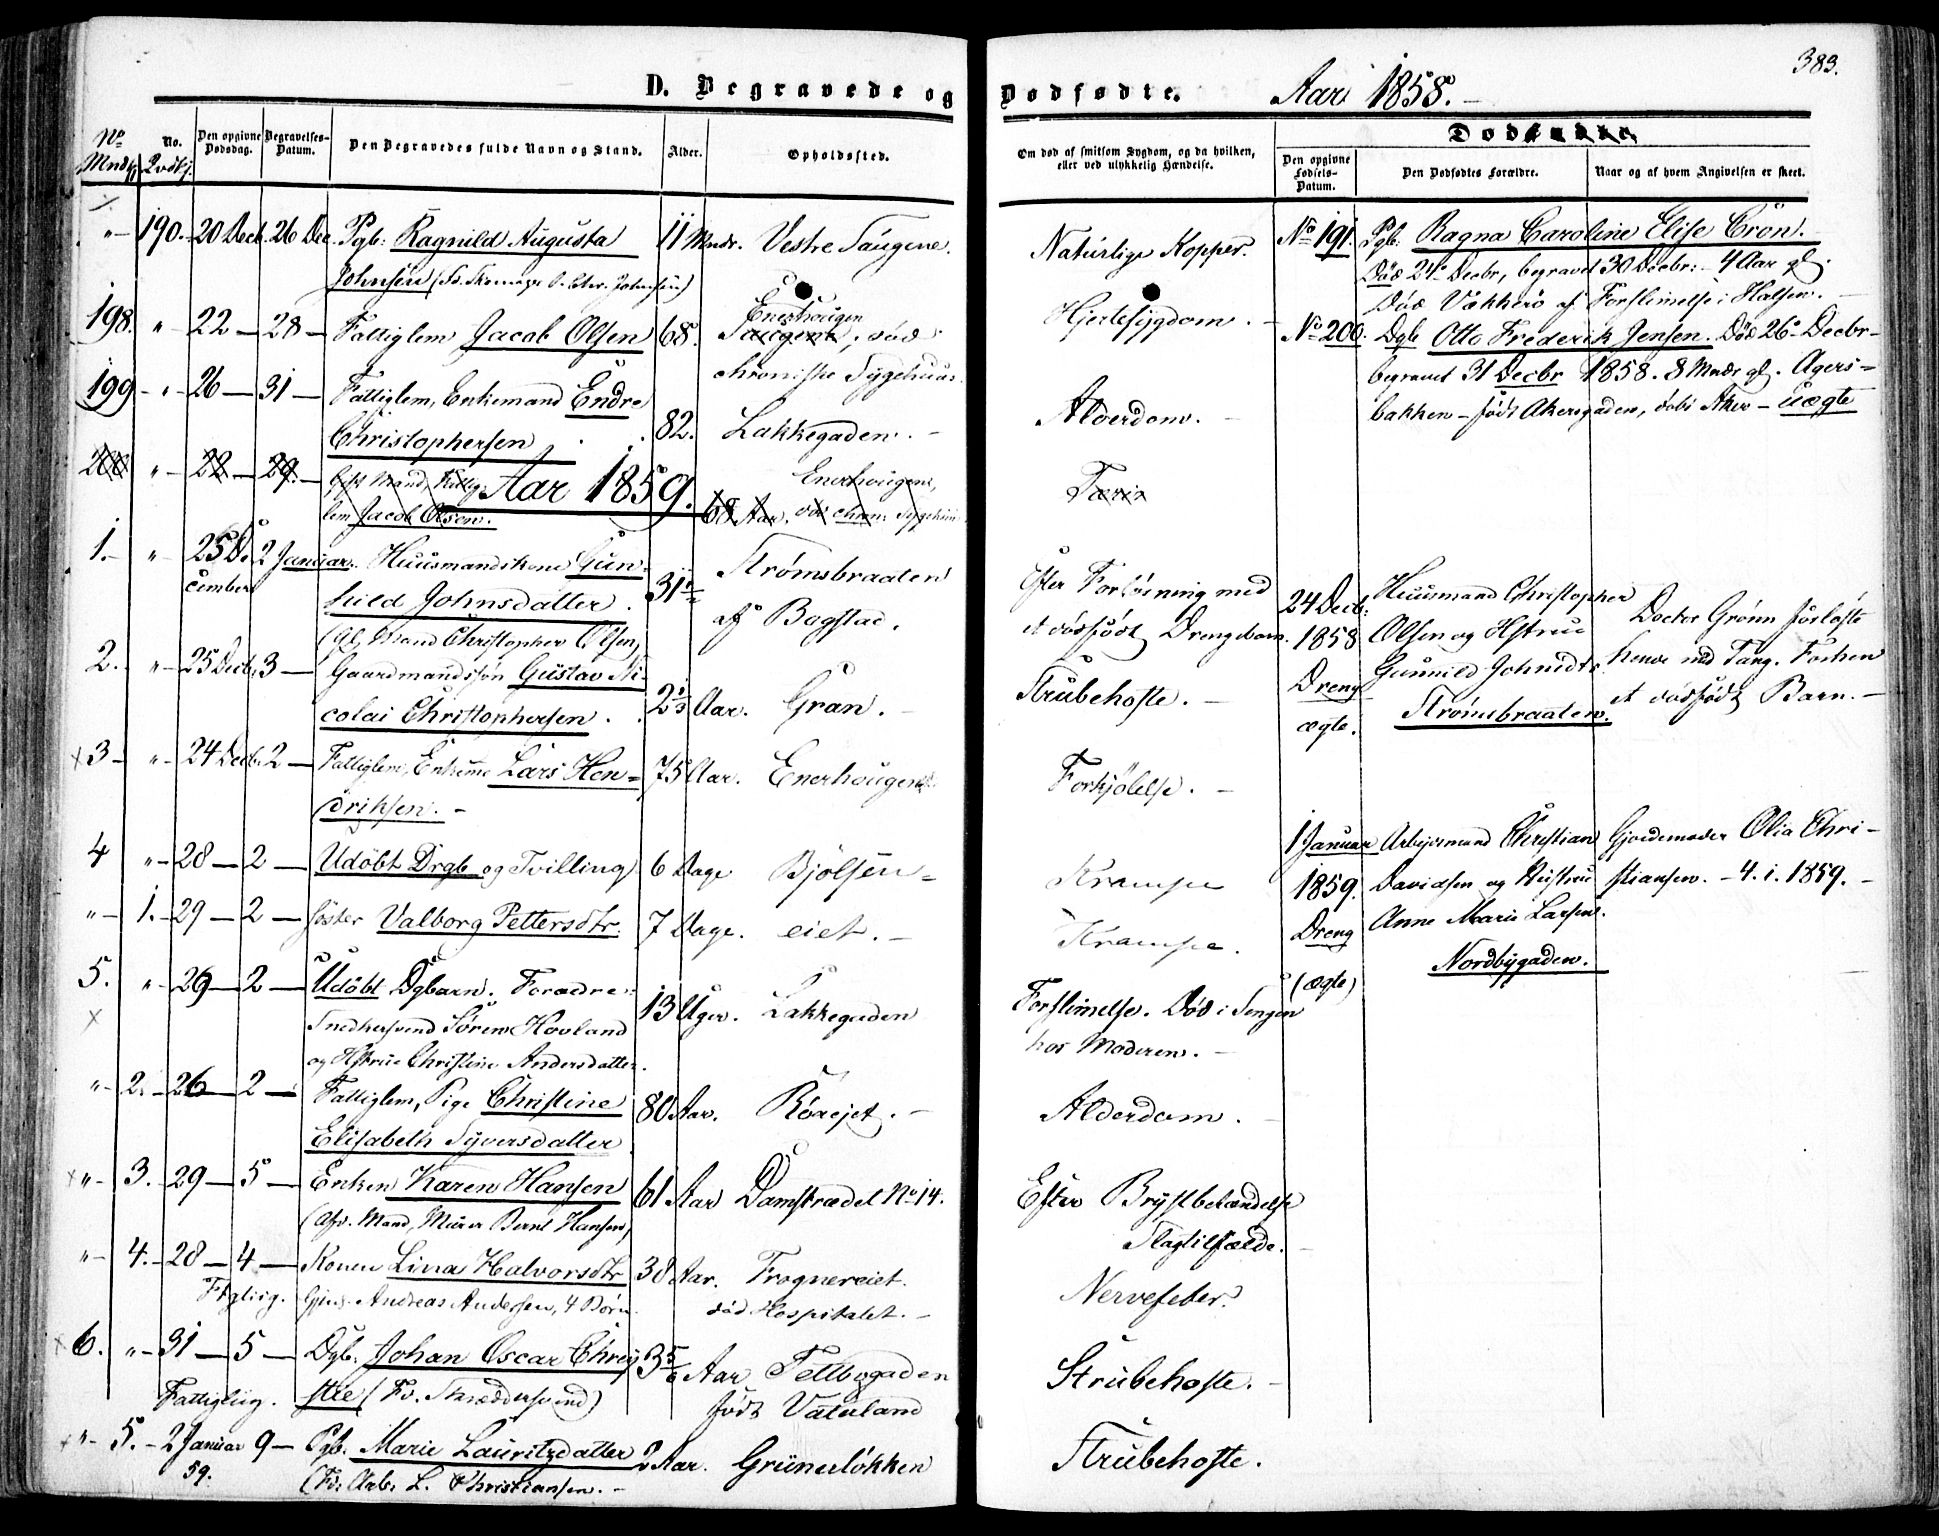 383.
D. Begravede og Dødfødte. Aar 1858.
No Mndkj. No. Qvdkj. Den opgivne Dødsdag. Begravelses-Datum. Den Begravedes fulde Navn og Stand. Alder. Opholdssted.
Om død af smitsom Sygdom, og da hvilken, eller ved ulykkelig Hændelse.
Dødfødte.
Den opgivne Fødsels-Datum. Den Dødfødtes Forældre. Naar og af hvem Angivelsen er skeet.
"- 190. 20 Decb. 26 Dec. Pgb: Ragnild Augusta 11 Mndr. Vestre Saugene. Naturlige Kopper.
Johnsen
198. " 22 — 28 — Fattiglem Jacob Olsen 68. Enerhougen Saugene, død Hjertesygdom.
chroniske Sygehuus.
199 " 26 — 31 — Fattiglem, Enkemand Endre
Christophersen 82. Lakkegaden. Alderdom.
200 " 22 — 29. — Gift Mand, Fattig-
lem Jacob Olsen. 68 Aar. Enerhougen, død chron: Sygehuus
Aar 1859.
1. " 25 De- 2 Januar. Huusmandskone Gun-
cember
hild Johnsdatter. 31½ Strømsbraaten
(Gl. Mand Christopher Olsen) af Bogstad.
Efter Forløsning med
et dødfødt Drengebarn.
2. " 25 Decb. 3 — Gaardmandssøn Gustav Ni-
colai Christophersen. 2⅓ Aar. Gran. Strubehoste.
3 " 24 Decb. 2 — Fattiglem, Enkeme Lars Hen-
driksen. 75 Aar. Enerhougen Forkjølelse.
4 " 28 — 2 — Udøbt Drgb og Tvilling 6 Dage Bjølsen- Krampe
" 1. 29 — 2 — søster Valborg Pettersdtr. 7 Dage. eiet. Krampe.
5. " 29 — 2 — Udøbt Dgbarn. Forædre:
Snedkersvend Søren Hovland 13 Uger. Lakkegaden
og Hstrue Christine Andersdatter.
Forslimelse. Død i Sengen
hos Moderen.
" 2. 26 — 2 — Fattiglem, Pige Christine
Elisabeth Syversdatter 80 Aar. Rørejet. Alderdom.
" 3. 29 — 5 — Enken Karen Hansen 61 Aar Damstrædet No 14.
(Afd. Mand, Murer Bernt Hansen)
Efter Brystbetændelse
Slagtilfælde.
" 4. 28 — 4 — Konen Lina Halvorsdtr 38 Aar. Frognereiet.
Ftglig. Andreas Andersen, 4 Børn. død Hospitalet. Nervefeber.
6. " 31 — 5 — Dgb. Johan Oscar Chrey-
Fattiglig. stie (Fd. Skræddersvend) 3⅚ Aar Teltbogaden
født Vaterland Strubehoste.
" 5. 2 Januar 9 — Pgb. Marie Lauritzdatter 2 Aar. Grünerløkken Strubehoste.
59. (Fd: Arb. L. Christiansen.
No 191. Pgb. Ragna Caroline Elise Crön.
Død 24 Decbr, begravet 30 Decbr: 4 Aar gl.
Død Vækkerø af Forslimelse i Halsen.
No 200. Dgb Otto Frederik Jensen. Død 26 Decbr
begravet 31 Decbr 1858. 8 Mndr gl. Agers-
bakken — født Akersgaden, døbt Aker — uægte
24 Decb: 1858 Dreng ægte.
Huusmand Christopher
Olsen og Hstrue
Gunnild Johnsdtr
Strømsbraaten.
Doctor Grønn forløste
hende med Tang. Forhen
et dødfødt Barn.
1 Januar 1859. Dreng (ægte)
Arbejdsmand Christian
Davidsen og Hustrue
Anne Marie Larsen.
Nordbygaden.
Gjordemoder Olia Chri-
stiansen. 4. 1. 1859.